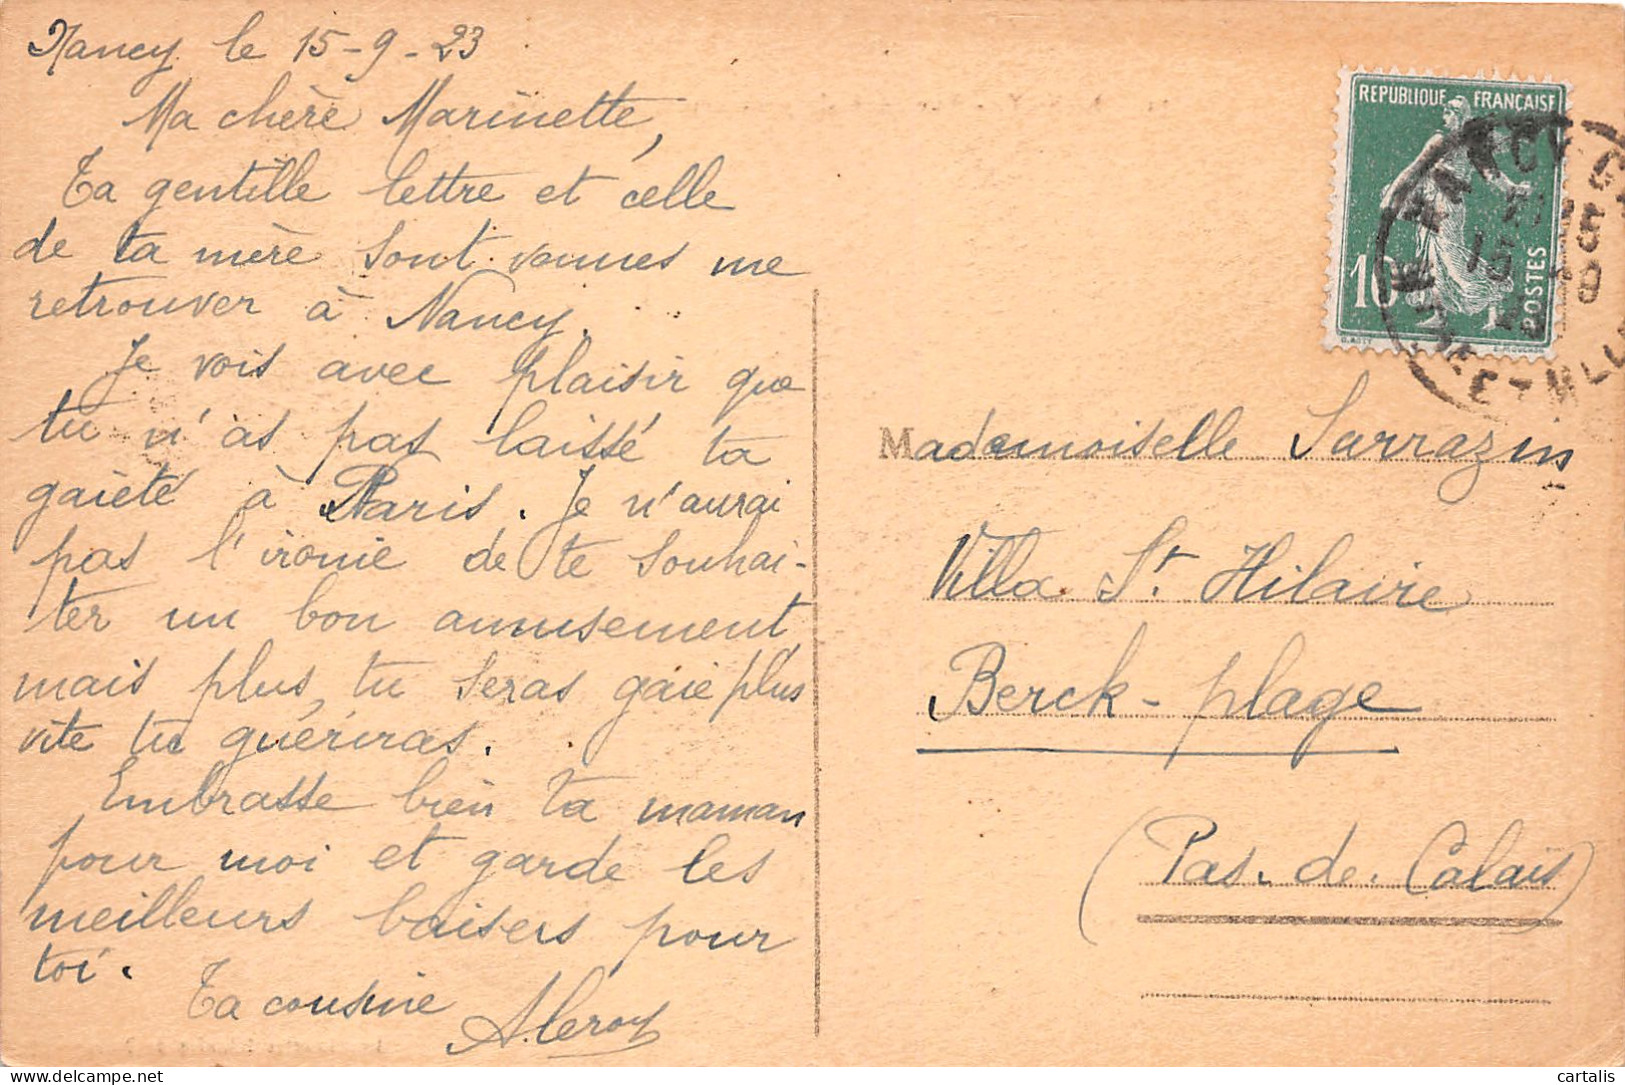 Nancy le 15-9-23
Ma chère Marinette,
Ta gentille lettre et celle
de ta mère sont venues me
retrouver à Nancy.
Je vois avec plaisir que
tu n'as pas laissé ta
gaieté à Paris. Je n'aurai
pas l'ironie de te souhai-
ter un bon amusement
mais plus, tu seras gaie plus
vite tu guériras.
Embrasse bien ta maman
pour moi et garde les
meilleurs baisers pour
toi.
Ta cousine
A. Leroy
REPUBLIQUE FRANÇAISE
10
POSTES
NANCY
Mademoiselle Sarrazin
Villa St. Hilaire
Berck-plage
(Pas-de-Calais)
cartalis